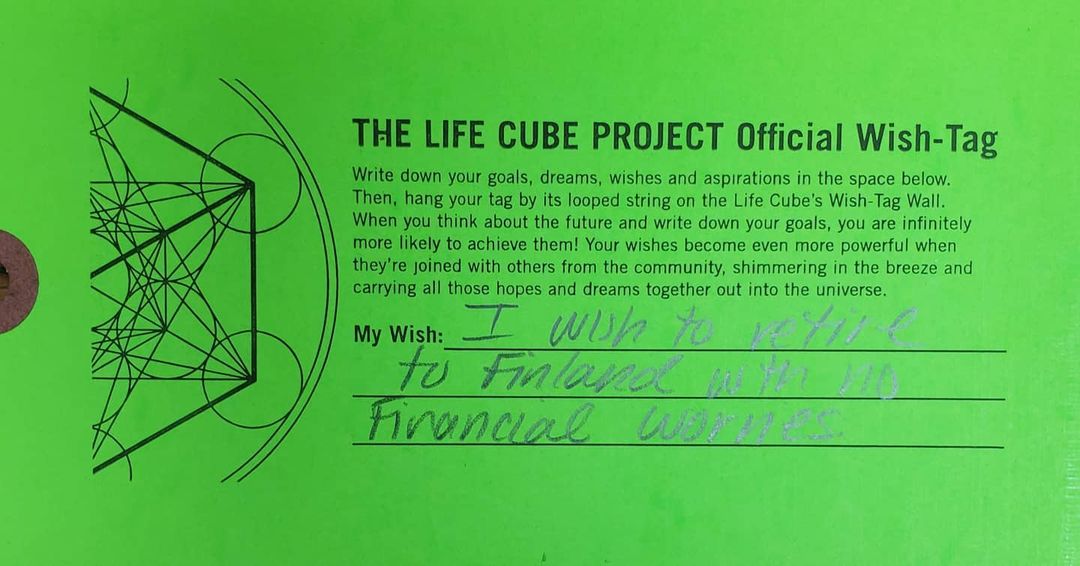 THE LIFE CUBE PROJECT Official Wish-Tag
Write down your goals, dreams, wishes and aspirations in the space below.
Then, hang your tag by its looped string on the Life Cube's Wish-Tag Wall.
When you think about the future and write down your goals, you are infinitely
more likely to achieve them! Your wishes become even more powerful when
they're joined with others from the community, shimmering in the breeze and
carrying all those hopes and dreams together out into the universe.
My Wish: I wish to retire
to Finland with no
Financial worries